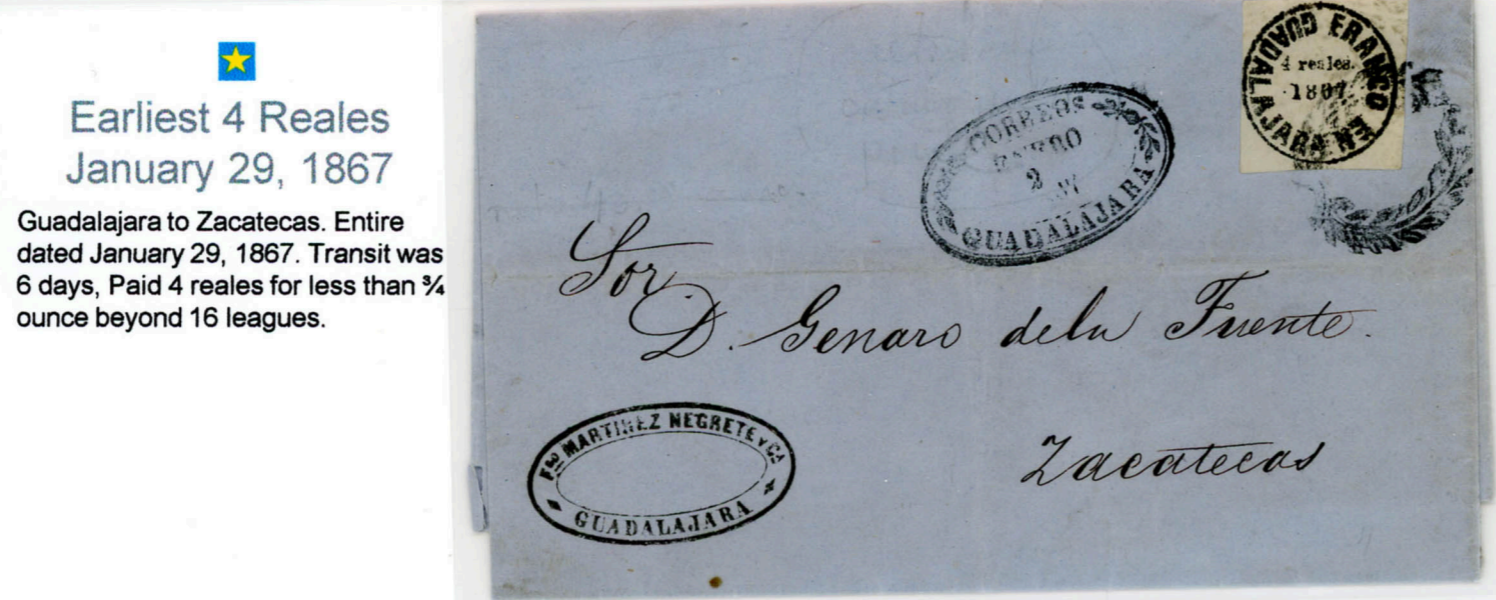 Earliest 4 Reales
January 29, 1867
Guadalajara to Zacatecas. Entire
dated January 29, 1867. Transit was
6 days, Paid 4 reales for less than ¾
ounce beyond 16 leagues.
FRANCO EN GUADALAJARA
4 reales.
1867
CORREOS
ENERO
2
GUADALAJARA
Sor.
D. Genaro dela Fuente.
Zacatecas
Fco MARTINEZ NEGRETE Y CA
GUADALAJARA